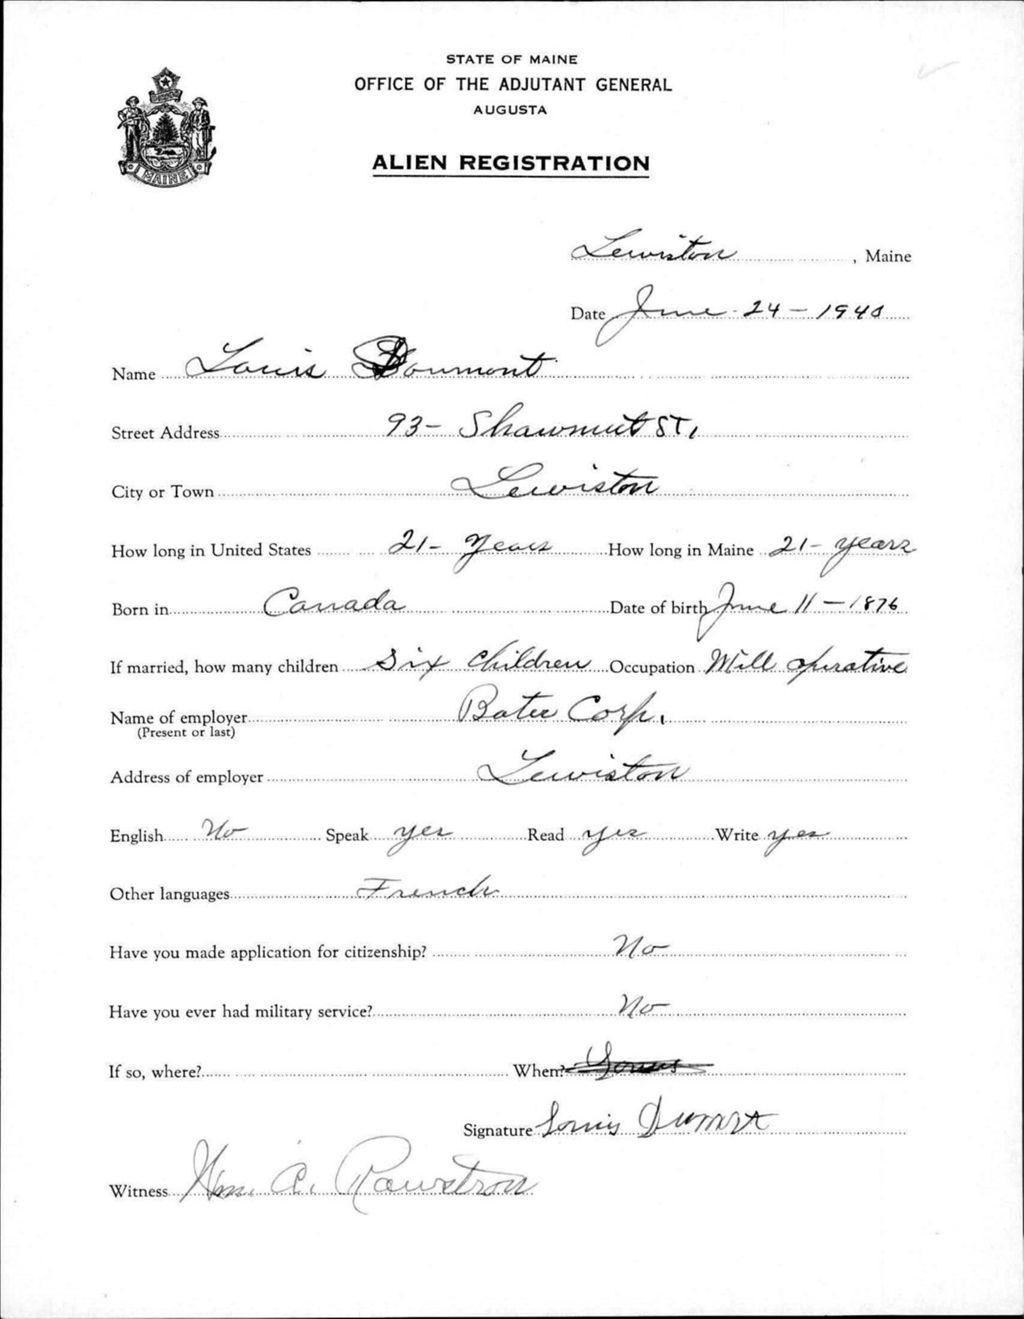 STATE OF MAINE
OFFICE OF THE ADJUTANT GENERAL
AUGUSTA
ALIEN REGISTRATION
MAINE
Lewiston, Maine
Date June 24 - 1940
Name Louis Doumont
Street Address 93 - Shawmut ST,
City or Town Lewiston
How long in United States 21 - Years How long in Maine 21 - years
Born in Canada Date of birth June 11 - 1876
If married, how many children Six children Occupation Mill operative
Name of employer Bates Corp.
(Present or last)
Address of employer Lewiston
English No Speak yes Read yes Write yes
Other languages French
Have you made application for citizenship? No
Have you ever had military service? No
If so, where? When?
Signature Louis
Witness Wm. A. Rawstron